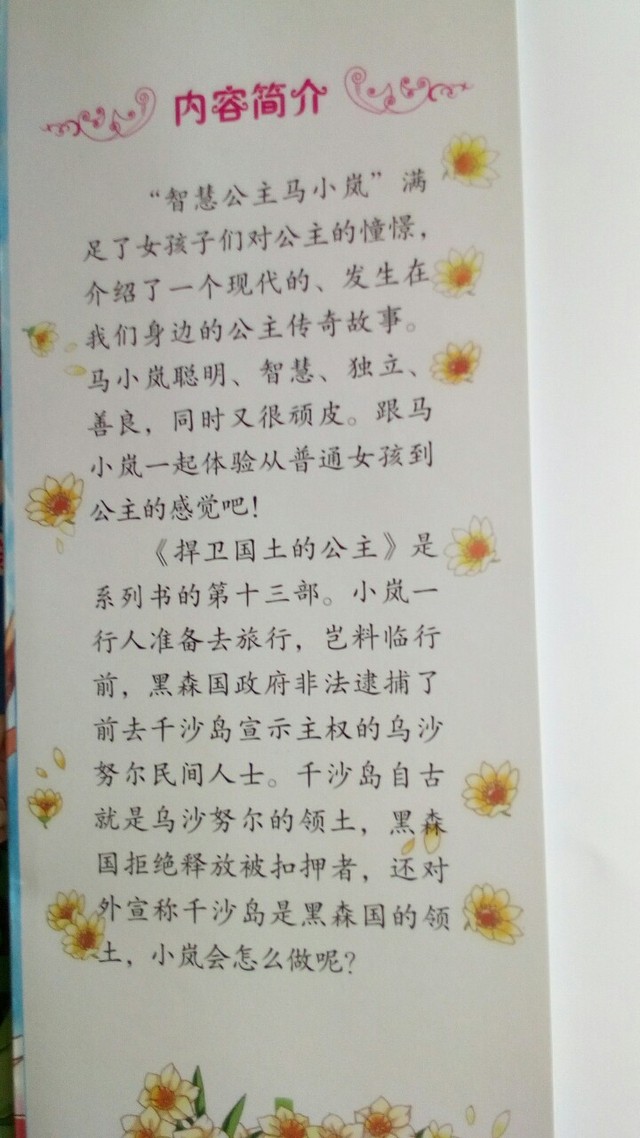 内容简介
“智慧公主马小岚”满
足了女孩子们对公主的憧憬，
介绍了一个现代的、发生在
我们身边的公主传奇故事。
马小岚聪明、智慧、独立、
善良，同时又很顽皮。跟马
小岚一起体验从普通女孩到
公主的感觉吧！
《捍卫国土的公主》是
系列书的第十三部。小岚一
行人准备去旅行，岂料临行
前，黑森国政府非法逮捕了
前去千沙岛宣示主权的乌沙
努尔民间人士。千沙岛自古
就是乌沙努尔的领土，黑森
国拒绝释放被扣押者，还对
外宣称千沙岛是黑森国的领
土，小岚会怎么做呢？